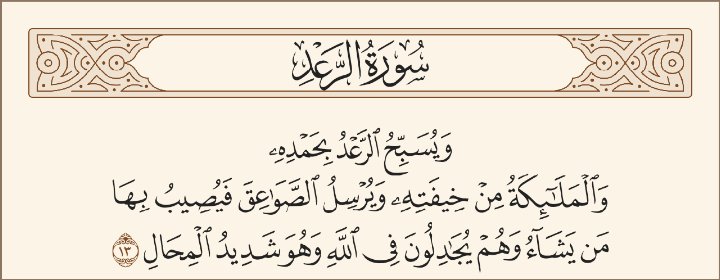 سُورَةُ الرَّعْدِ
وَيُسَبِّحُ ٱلرَّعْدُ بِحَمْدِهِۦ
وَٱلْمَلَـٰٓئِكَةُ مِنْ خِيفَتِهِۦ وَيُرْسِلُ ٱلصَّوَٰعِقَ فَيُصِيبُ بِهَا
مَن يَشَآءُ وَهُمْ يُجَـٰدِلُونَ فِى ٱللَّهِ وَهُوَ شَدِيدُ ٱلْمِحَالِ ١٣